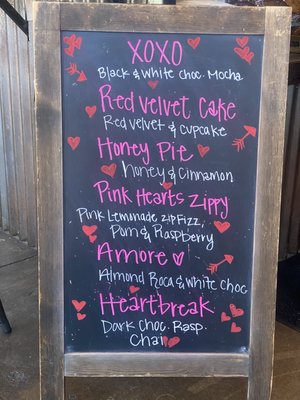 XOXO
Black & white choc. Mocha
Red Velvet Cake
Red velvet & cupcake
Honey Pie
Honey & Cinnamon
Pink Hearts Zippy
Pink Lemonade zipfizz,
Pom & Raspberry
Amore
Almond Roca & white choc
Heartbreak
Dark Choc. Rasp.
Chai